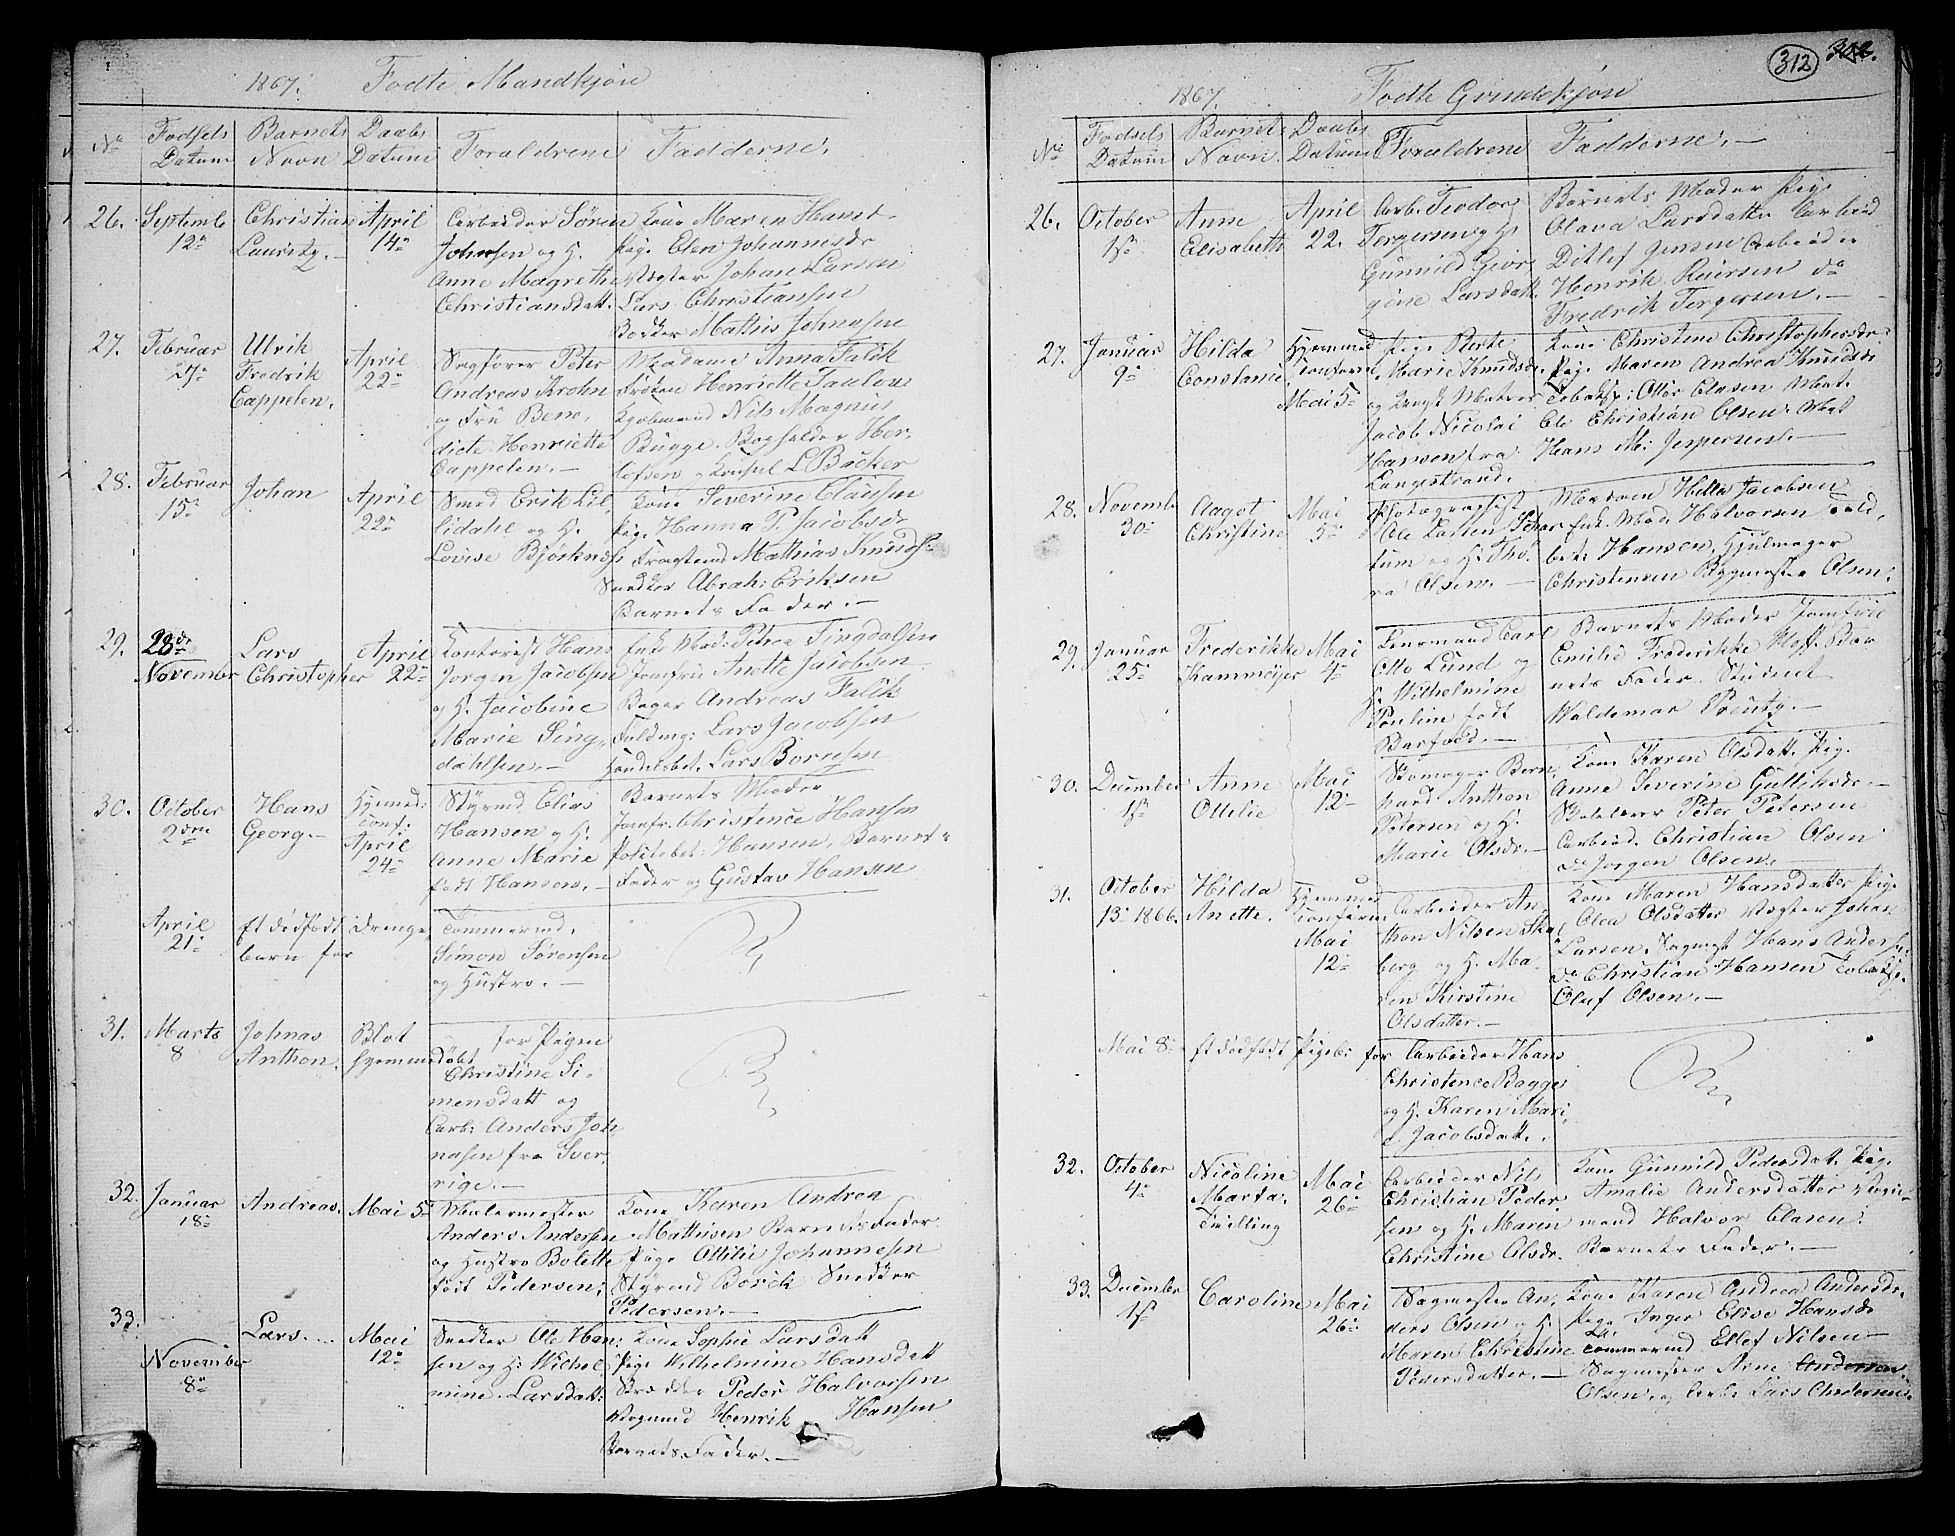 1867. Fødte Mandkjøn
No Fødsels Datum Barnets Navn Daabs Datum Forældrene Fadderne.
26. Septembr 12te Christian Lauritz. April 14de
Arbeider Søren
Johnsen og H.
Anne Magrethe
Christiansdatt.
Kone Maren Hans
Pige Elen Johannesdr
Vægter Johan Larsen
Lars Christiansen
Bødker Mathis Johnsen
27. Februar Ulrik Fredrik Cappelen. April 22de
Sagfører Peter
Andreas Krohn
og Frue Bene
dicte Henriette
Cappelen.
Madame Anna Falck
Frøken Henriette Paulsen
Kjøbmand Nils Magnus
Bugge. Bogholder Her
lofsen, Konsul L Bäcker
28. Februar 15de Johan April 22de
Smed Erik Lil
lidahl og H.
Lovise Bjørknæs
Kone Severine Claüsen
Pige Hanna P. Jacobsdr
Mathias Knuds
Snedker Abrah: Eriksen
Barnets Fader.
29. 28de November Lars Christopher April 22de
Kontorist Hans
Jørgen Jacobsen
og H. Jacobine
Marie Sing
dahlsen.
Enke Mad: Petrea Singdalsen
Jomfru Anette Jacobsen
Bager Andreas Falck
Fuldmg: Lars Jacobsen
Handelsbet. Lars Børresen
30. October 2den Hans Georg. Hjemmed: Conf. April 24de
Styrmd Elias
Hansen og H.
Anne Marie
født Hansen.
Barnets Moder
Jomfr. Christence Hansen
Politibet: Hansen, Barnets
Fader og Gustav Hansen
April 21de Et dødfødt Drenge barn for
Tømmermd.
Simon Sørensen
og Hustro.
31. Marts 8 Johnas Anthon. Blot hjemmedøbt
for Pigen
Christine Si
mensdatt og
Arb: Anders Joh
nasen fra Sver
rige.
32. Januar 18de Andreas. Mai 5te
Malermester
Anders Andersen
og Hustro Bolette
født Pedersen
Kone Karen Andrea
Mathisen Barnets Fader
Pige Ottilie Johannesen
Styrmd Borick Snedker
Pedersen.
33. November 8de Lars. Mai 12te
Snedker Ole Han
sen og H. Wilhel
mine Larsdatt:
Kone Sophie Larsdatt
Pige Wilhelmine Hansdatt
Skrædder Peder Halvorsen
Vognmd Henrik Hansen
Barnets Fader.
312
1867. Fødte Qvindekjøn
No Fødsels Datum Barnets Navn. Daabs Datum Forældrene Fadderne.
26. October 1ste Anne Elisabeth April 22.
Arb. Teodor
Tergersen og H.
Gunnild Geor
gine Larsdatt.
Barnets Moder Pige
Olava Larsdatter Arbeid
Ditlef Jensen Arbeider
Henrik Reiersen do
Fredrik Tergersen.
27. Januar 9de Hilda Constance Hjemmed Conferm. Mai 5te
Pige Berte
Marie Knudsdr.
og Matros
Jacob Nicolai
Hansen fra
Langestrand.
Kone Christine Christophersdr.
Pige. Maren Andrea Knudsdr
Tobaksp: Otto Olsen Mat.
Ole Christian Olsen. Mat
Hans M: Jespersen.
28. Novembr 30te Aagot Christine Mai 5te
Photographist
Ole Larsen
tum og H. Tho
ra Olsen.
Madam Hella Jacobsen
Enk. Mad. Halvorsen Told
bet: Hansen, Hjulmager
Christensen Bygmester Olsen.
29. Januar 25de Frederikke Kammeijer Mai 4de
Lensmand Carl
Otto Lund og
H. Wilhelmine
Pauline født
Barfoed.
Barnets Moder Jomfrue
Emilie Frederikke Hoff. Bar
nets Fader. Student
Waldemar Preutz.
30. December 1ste Anne Ottilie Mai 12te
Skomager Bern
hard Anthon
Petersen og H.
Marie Olsdr.
Kone Karen Olsdatt. Pige.
Anne Severine Gulliksdr.
Skolelærer Peter Petersen
Arbeid. Christian Olsen
do Jørgen Olsen.
31. October 13de 1866. Hilda Anette. Hjemmed Conferm Mai 12te
Arbeider An
thon Nilsen Ska
berg og H. Ma
ren Kirstine
Olsdatter.
Kone Maren Hansdatter Pige
Olea Olsdatter Vægter Johan
Larsen, Sagmest Hans Anders
do Christian Hansen Tobaksp.
Oluf Olsen.
Mai 8de Et dødfødt Pigeb: for
Arbeider Hans
Christence Bagge
og H. Karen Mari
e Jacobsdatt.
32. October 4de Nicoline Marta. Tvilling Mai 26de
Arbeider Nils
Christian Peder
sen og H. Maren
Christine Olsdr.
Kone Gunnild Pedersdat. Pige
Amalie Andersdatter Vogn
mand Halvor Clasen.
Barnets Fader.
33. December 1ste Caroline Mai 26de
Sagmester An
ders Olsen og H.
Maren Christine
Pedersdatter.
Kone Karen Andrea Andersdr.
Pige Inger Elise Hansdr
Tømmermd Ellef Nilsen
Sagmester Arne Andersen
Olsen, og Arb. Lars Andersen